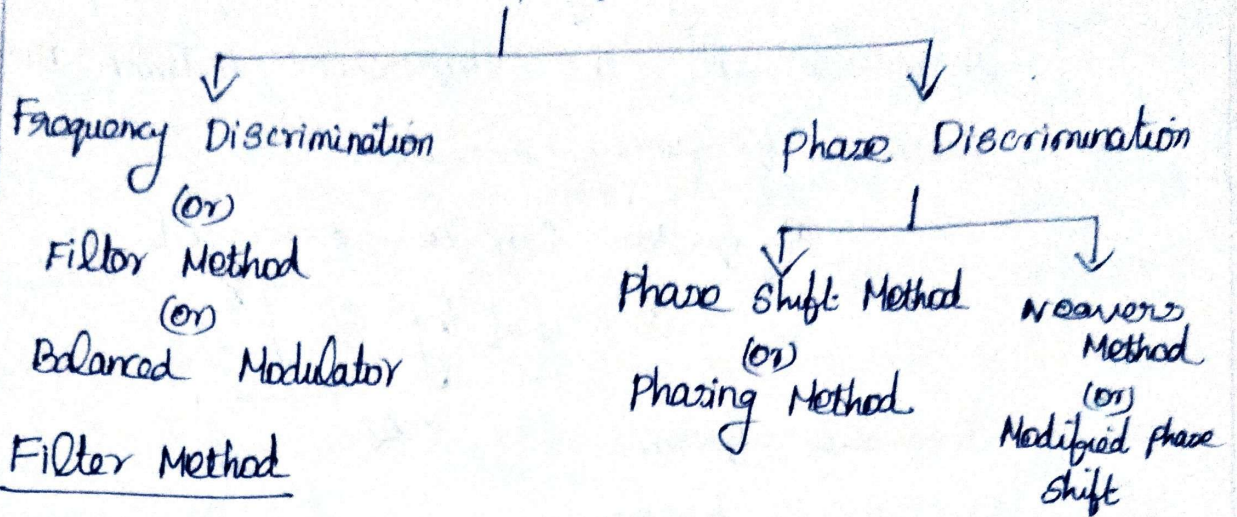 Frequency Discrimination
(or)
Filter Method
(or)
Balanced Modulator
Phase Discrimination
Phase shift Method
(or)
Phasing Method
Weavers
Method
(or)
Modified phase
shift
Filter Method